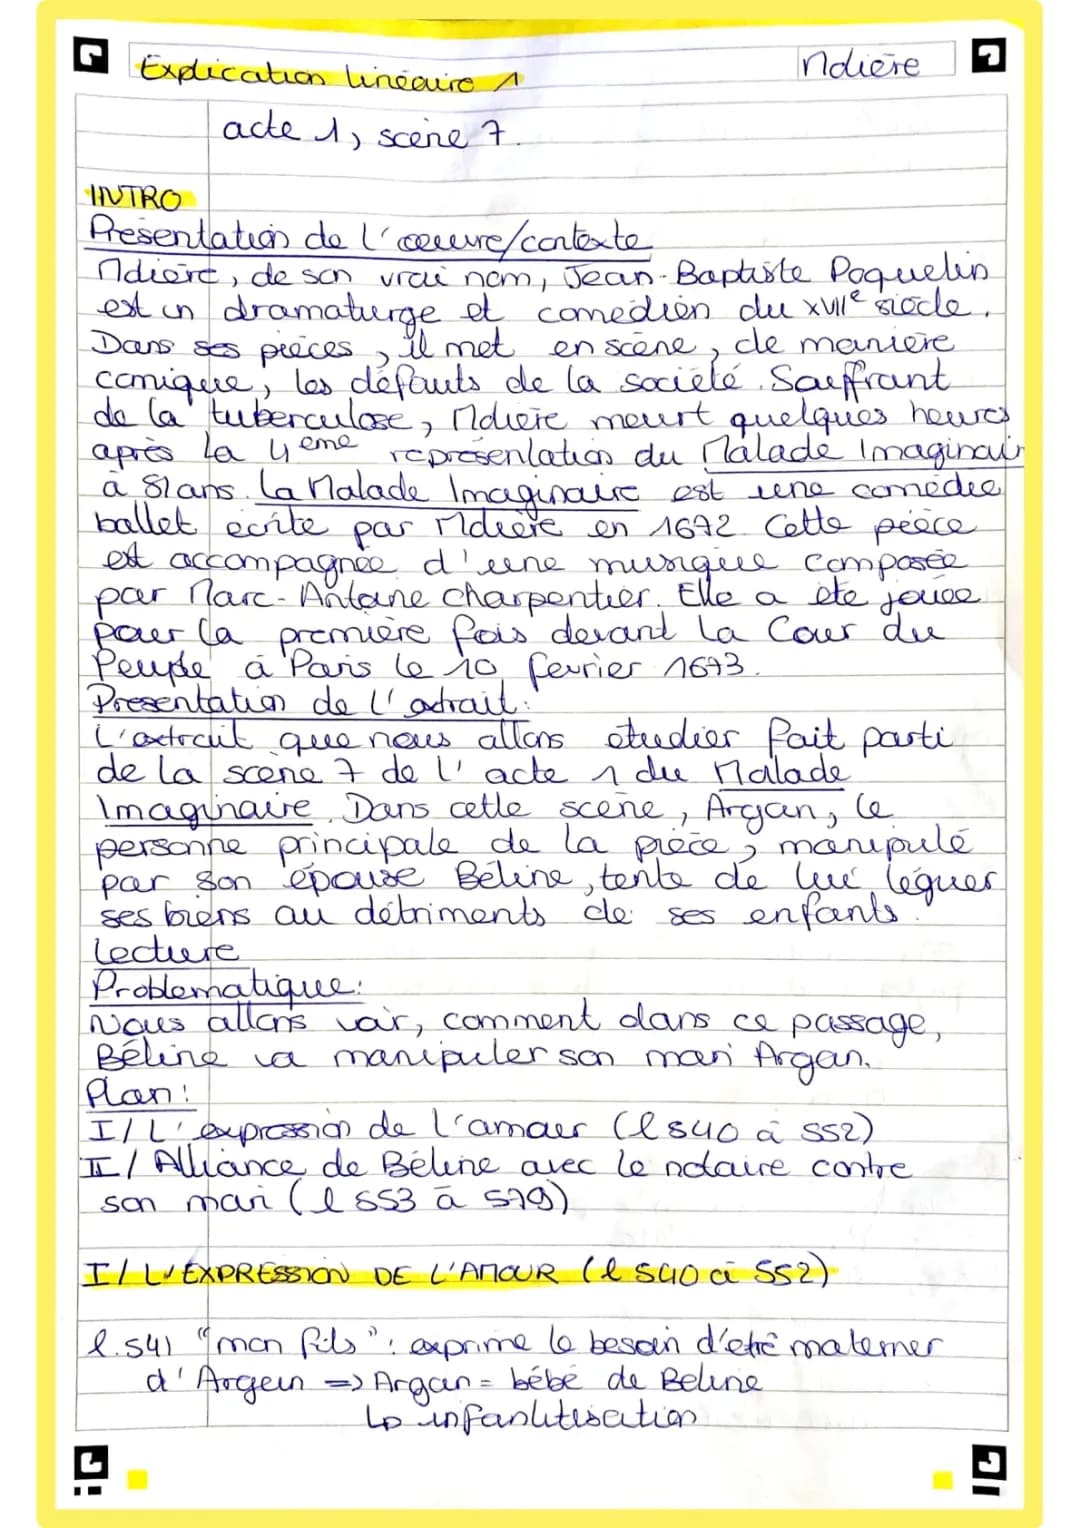 Explication linéaire 1
Molière
acte 1, scène 7.
INTRO
Présentation de l'oeuvre/contexte
Molière, de son vrai nom, Jean-Baptiste Poquelin
est un dramaturge et comédien du XVIIe siècle.
Dans ses pièces, il met en scène, de manière
comique, les défauts de la société. Souffrant
de la tuberculose, Molière meurt quelques heures
après la 4ème représentation du Malade Imaginair
à 51ans. La Malade Imaginaire est une comédie
ballet écrite par Molière en 1672. Cette pièce
est accompagnée d'une musique composée
par Marc-Antoine Charpentier. Elle a été jouée
pour la première fois devant la Cour du
Peuple à Paris le 10 février 1673.
Présentation de l'extrait:
L'extrait que nous allons étudier fait parti
de la scène 7 de l'acte 1 du Malade
Imaginaire. Dans cette scène, Argan, le
personne principale de la pièce, manipulé
par son épouse Béline, tente de lui léguer
ses biens au détriments de ses enfants.
Lecture
Problématique:
Nous allons voir, comment dans ce passage,
Béline va manipuler son mari Argan.
Plan:
I/ L'expression de l'amour (l 540 à 552)
II/ Alliance de Béline avec le notaire contre
son mari (l 553 à 579)
I/ L'EXPRESSION DE L'AMOUR (l 540 à 552)
l.541 "mon fils": exprime le besoin d'etre materner
d'Argan => Argan = bébé de Beline
↳ infantilisation